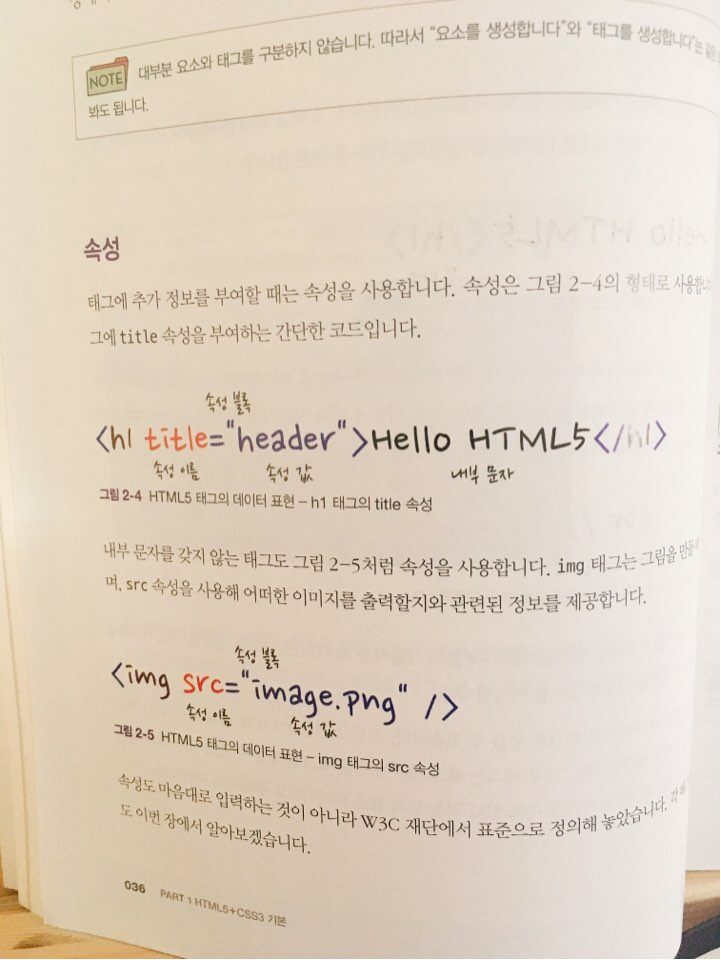 NOTE 대부분 요소와 태그를 구분하지 않습니다. 따라서 "요소를 생성합니다"와 "태그를 생성합니다"는
봐도 됩니다.
속성
태그에 추가 정보를 부여할 때는 속성을 사용합니다. 속성은 그림 2-4의 형태로 사용합니
그에 title 속성을 부여하는 간단한 코드입니다.
속성 블록
<h1 title="header">Hello HTML5</h1>
속성 이름 속성 값 내부 문자
그림 2-4 HTML5 태그의 데이터 표현 – h1 태그의 title 속성
내부 문자를 갖지 않는 태그도 그림 2-5처럼 속성을 사용합니다. img 태그는 그림을 만들
며, src 속성을 사용해 어떠한 이미지를 출력할지와 관련된 정보를 제공합니다.
속성 블록
<img src="image.png" />
속성 이름 속성 값
그림 2-5 HTML5 태그의 데이터 표현 – img 태그의 src 속성
속성도 마음대로 입력하는 것이 아니라 W3C 재단에서 표준으로 정의해 놓았습니다. 각
도 이번 장에서 알아보겠습니다.
036 PART 1 HTML5+CSS3 기본